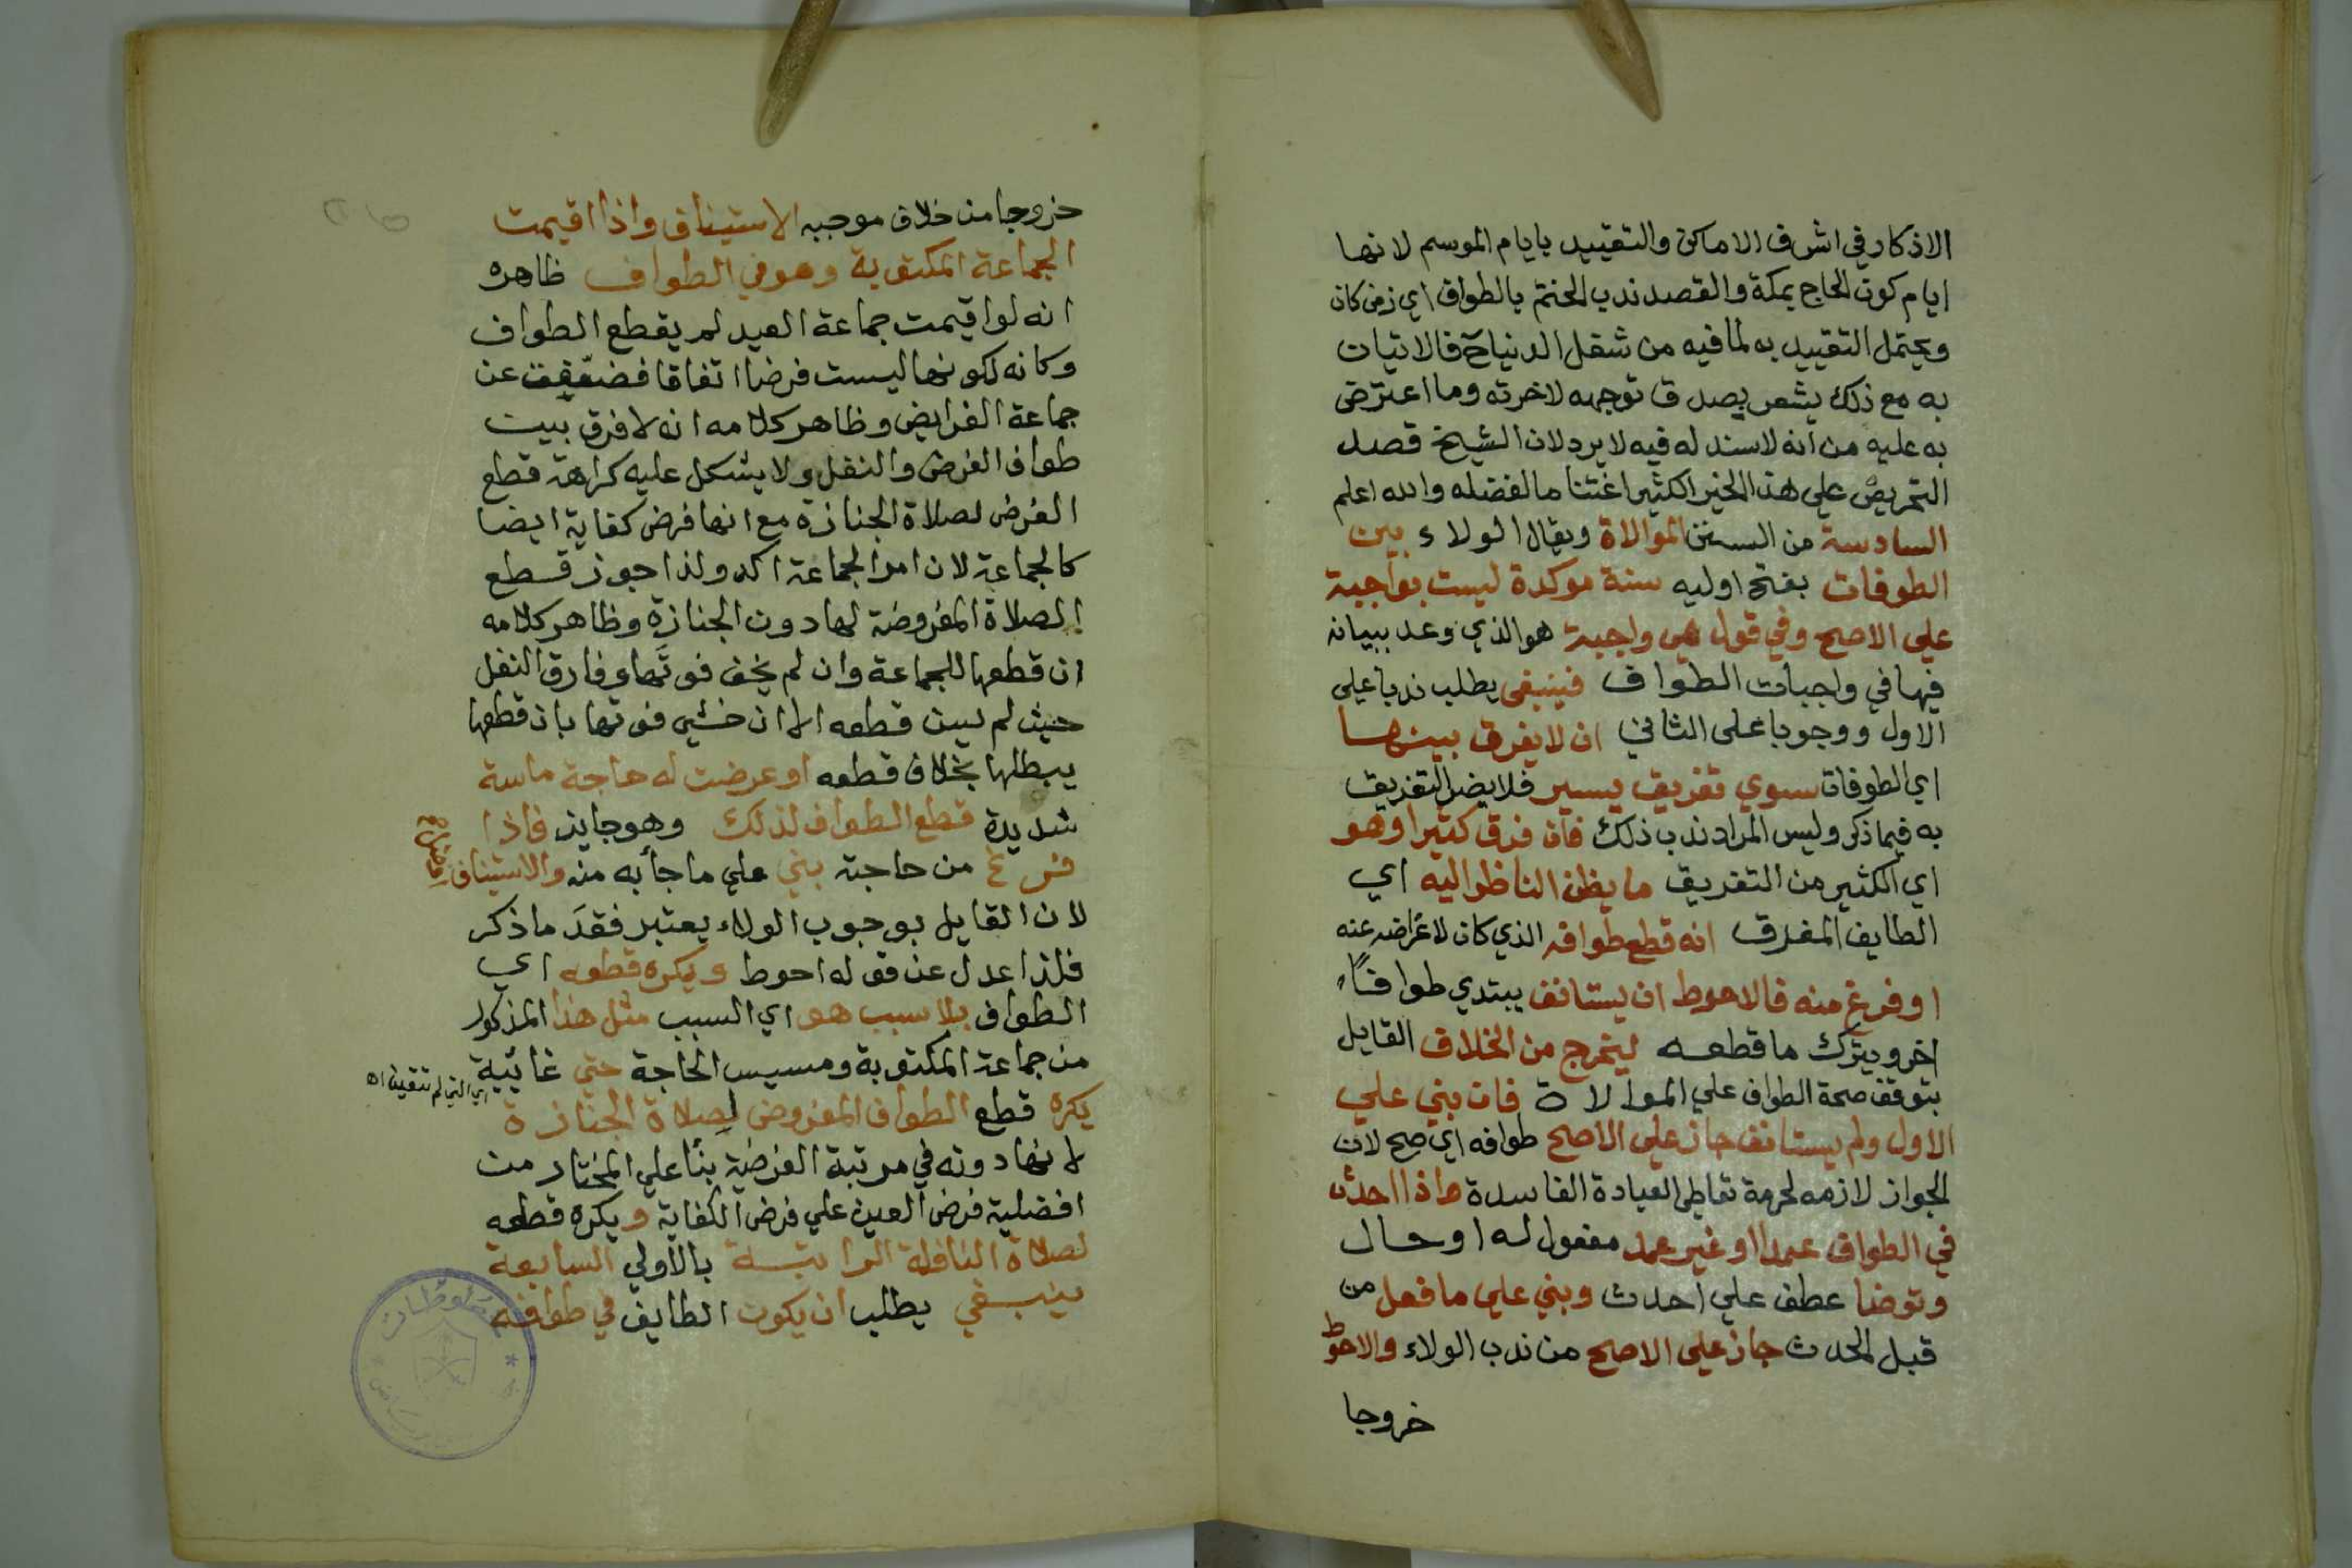 الاذكار في اشرف الاماكن والتقييد بايام الموسم لانها
ايام كون الحاج بمكة والقصد ندب الختم بالطواف اي زمن كان
ويحتمل التقييد به لما فيه من شغل الدنيا فالاتيان
به مع ذلك يشعر بصدق توجهه لاخرته وما اعترض
به عليه من انه لاسند له فيه لا يرد لان الشيخ قصد
التحريض علي هذا الخير الكثير اغتناما لفضله والله اعلم
السادسة من السنن الموالاة ويقال الولاء بين
الطوفات بفتح اوليه سنة موكدة ليست بواجبة
علي الاصح وفي قول هي واجبة هو الذي وعد ببيانه
فيها في واجبات الطواف فينبغي يطلب ندبا علي
الاول ووجوبا على الثاني ان لا يفرق بينها
اي الطوفات سوي تفريق يسير فلا يضر التفريق
به فيما ذكر وليس المراد ندب ذلك فان فرق كثيرا وهو
اي الكثير من التفريق ما يظن الناظر اليه اي
الطايف المفرق انه قطع طوافه الذي كان لاعراضه عنه
او فرغ منه فالاحوط ان يستانف يبتدي طوافاً
اخر ويترك ما قطعه ليخرج من الخلاف القايل
بتوقف صحة الطواف علي الموالاة فان بني علي
الاول ولم يستانف جاز علي الاصح طوافه اي صح لان
الجواز لازمه لحرمة تعاطي العبادة الفاسدة واذا احدث
في الطواف عمدا او غير عمد مفعول له او حال
وتوضا عطف علي احدث وبني علي ما فعل من
قبل الحدث جاز علي الاصح من ندب الولاء والاحوط
خروجا
خروجا من خلاف موجبه الاستيناف واذا اقيمت
الجماعة المكتوبة وهو في الطواف ظاهره
انه لو اقيمت جماعة العيد لم يقطع الطواف
وكانه لكونها ليست فرضا اتفاقا فضعفت عن
جماعة الفرايض وظاهر كلامه انه لا فرق بين
طواف الفرض والنفل ولا يشكل عليه كراهة قطع
الفرض لصلاة الجنازة مع انها فرض كفاية ايضا
كالجماعة لان امر الجماعة اكد ولذا جوز قطع
الصلاة المفروضة لها دون الجنازة وظاهر كلامه
ان قطعها للجماعة وان لم يخف فوتها وفارق النفل
حيث لم يسن قطعه الا ان خشي فوتها بان قطعها
يبطلها بخلاف قطعه او عرضت له حاجة ماسة
شديدة قطع الطواف لذلك وهو جايز فاذا
فرغ من حاجته بني علي ما جأ به منه والاستيناف افضل
لان القايل بوجوب الولاء يعتبر فقدَ ما ذكر
فلذا عدل عن قوله احوط ويكره قطعه اي
الطواف بلا سبب هو اي السبب مثل هذا المذكور
من جماعة المكتوبة ومسيس الحاجة حتي غائيية
يكره قطع الطواف المفروض لصلاة الجنازة
اي التي لم تتعين اه
لانها دونه في مرتبة الفرضية بنأ علي المختار من
افضلية فرض العين علي فرض الكفاية ويكره قطعه
لصلاة النافلة الراتبة بالاولي السابعة
ينبغي يطلب ان يكون الطايف في طوافه
مخطوطات